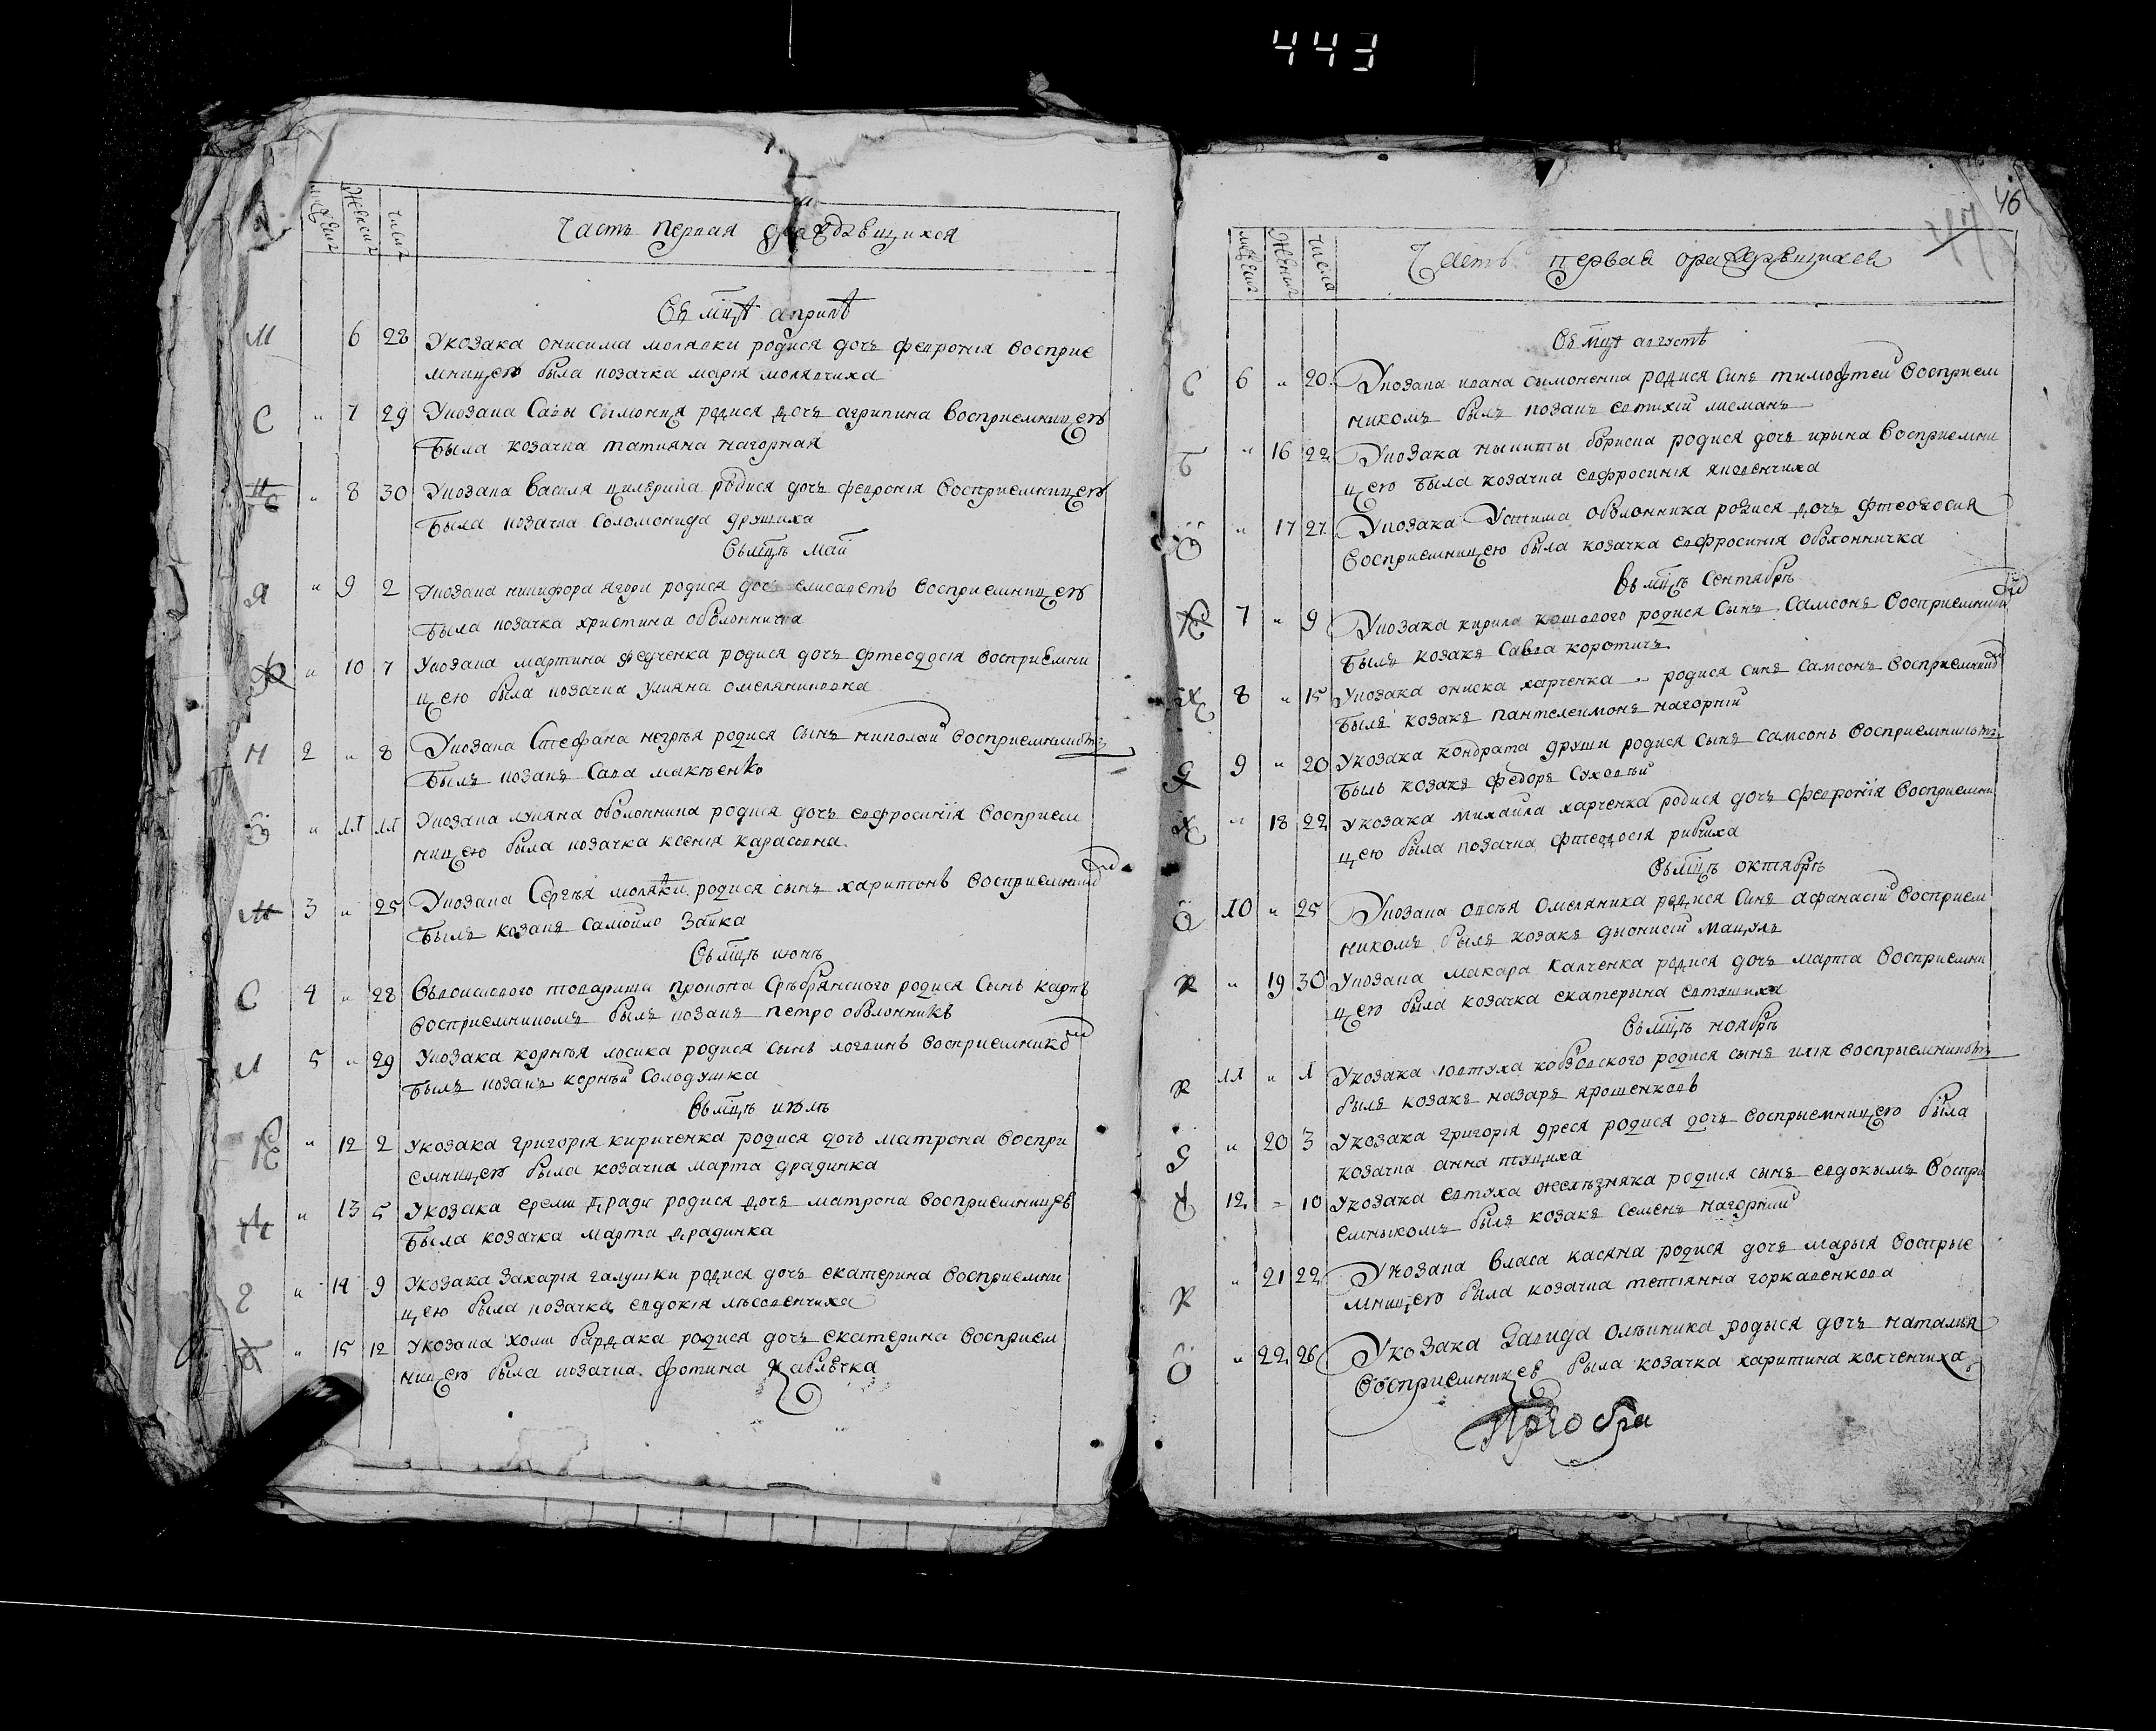 443
46
47
мужеск
женск
числа
Часть первая о раждавшихся
Въ мцѣ априлѣ
М 6 28 У козака онисима молявки родися дочь февронія восприе
мницею была козачка марія молявчиха
С " 7 29 У козака Савы Сымонця родися дочь агрипина восприемницею
была козачка татияна нагорная
" 8 30 У козака василя родися дочь февронія восприемницею
была козачка соломонида друшиха
Въ мцѣ май
Я " 9 2 У козака никифора ягори родися дочь елисаветъ восприемницею
была козачка христина оболонничка
Ф " 10 7 У козака мартина федченка родися дочь фтеодосія восприемни
цею была козачка улияна омеляниковна
Н 2 " 8 У козака Стефана негрѣя родися сынъ николай восприемникомъ
былъ козакъ Сава макѣенко
О " 11 11 У козака лукяна оболонника родися дочь евфросинія восприем
ницею была козачка ксенія карасовна
М 3 " 25 У козака Сергѣя молявки родися сынъ харитонъ восприемникомъ
былъ козакъ самойло Заика
Въ мцѣ июнѣ
С 4 " 28 Въ войскового товариша прокопа Срѣбрянского родися Сынъ карпъ
восприемникомъ былъ козакъ петро оболонникъ
Л 5 " 29 У козака корнѣя лосика родися сынъ логвинъ восприемникомъ
былъ козакъ корнѣй Солодушка
Въ мцѣ июлѣ
К " 12 2 У козака григорія кириченка родися дочь матрона воспри
емницею была козачка марта драдинка
Д " 13 5 У козака ереми дради родися дочь матрона восприемницею
была козачка марта драдинка
Г " 14 9 У козака Захарія галушки родися дочь екатерина восприемни
цею была козачка евдокія лѣсовенчиха
Б " 15 12 У козака хоми бардака родися дочь екатерина восприем
ницею была козачка фотина
мужеск
женск
числа
Часть первая о раждавшихся
Въ мцѣ августѣ
С 6 " 20 У козака ивана сымоненка родися Синъ тимофтей восприем
никомъ былъ козакъ евтихій лисманъ
Б " 16 22 У козака мыкиты бориска родися дочь ирына восприемни
цею была козачка евфросинія яковенчиха
О " 17 27 У козака Устима оболонника родися дочь фтеодосия
восприемницею была козачка евфросинія оболонничка
Въ мцѣ Сентябрѣ
К 7 " 9 У козака кирила кошового родися Сынъ Самсонъ восприемникомъ
былъ козакъ Савва коротичъ
Х 8 " 15 У козака ониска харченка родися синъ самсонъ восприемникомъ
былъ козакъ пантелеимонъ нагорній
Д 9 " 20 У козака кондрата друши родися сынъ самсонъ восприемникомъ
былъ козакъ федоръ Суховѣй
Х " 18 22 У козака михаила харченка родися дочь февронія восприемни
цею была козачка фтеодосія рибчиха
Въ мцѣ октябрѣ
О 10 " 25 У козака овсѣя омеляника родися Синъ афанасій восприем
никомъ былъ козакъ дионисий мацуль
К " 19 30 У козака макара калченка родися дочь марта восприемни
цею была козачка екатерына евтушиха
Въ мцѣ ноябрѣ
К 11 " 1 У козака юовтуха родися сынъ илія воспрыемникомъ
былъ козакъ назаръ ярошенковъ
Д " 20 3 У козака григорія дреся родися дочь воспрыемницею была
козачка анна тяциха
12 " 10 У козака евтуха желѣзняка родися сынъ евдокымъ воспри
емныкомъ былъ козакъ семенъ нагорний
К " 21 22 У козака власа касяна родися дочь марыя воспрые
мницею была козачка тетіянна горкавенкова
О " 22 26 У козака Давида олѣиника родыся дочь наталья
восприемницею была козачка харитина колченчиха